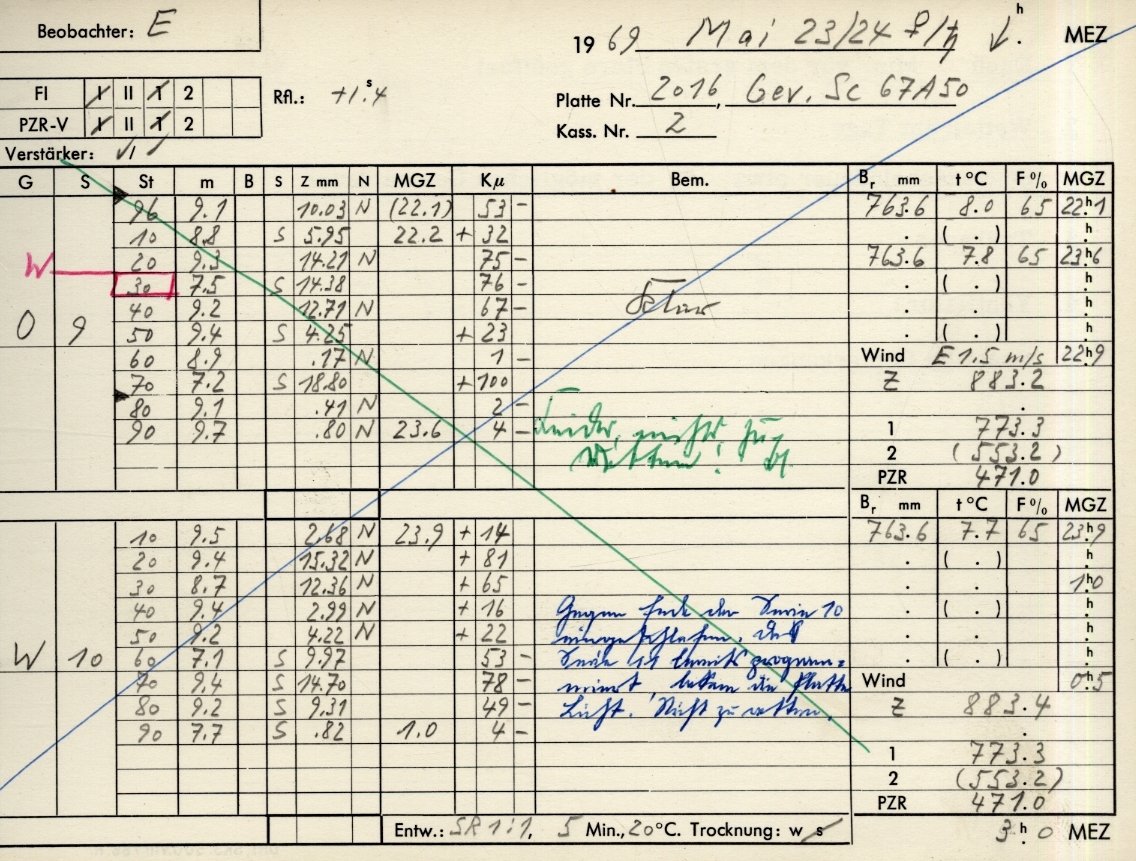 Beobachter: E
19 69 Mai 23/24 ♀/♄ h. MEZ
FI I II 1 2
PZR-V I II 1 2
Rfl.: +1.s4
Platte Nr. 2016, Gev. Sc 67A50
Kass. Nr. 2
Verstärker: √
G S St m B S Z mm N MGZ Kμ Bem. Br mm t °C F % MGZ
96 9.1 10.03 N (22.1) 53 - 763.6 8.0 65 22h1
10 8.8 S 5.95 22.2 + 32 . ( . ) h
W 20 9.3 14.21 N 75 - 763.6 7.8 65 23h6
30 7.5 S 14.38 76 - . ( . ) h
40 9.2 12.71 N 67 - klar
O 9 50 9.4 S 4.25 + 23 . ( . ) h
60 8.9 .17 N 1 - Wind E 1.5 m/s 22h9
70 7.2 S 18.80 + 100 Z 883.2
80 9.1 .41 N 2 -
90 9.7 .80 N 23.6 4 - Leider, nichts zu 1 773.3
retten! 2 (553.2)
PZR 471.0
Br mm t °C F % MGZ
10 9.5 2.68 N 23.9 + 14 763.6 7.7 65 23h9
20 9.4 15.32 N + 81 . ( . ) h
30 8.7 12.36 N + 65 1h0
40 9.4 2.99 N + 16 Gegen Ende der Serie 10 . ( . ) h
50 9.2 4.22 N + 22 eingeschlafen. Als
W 10 60 7.1 S 9.97 53 - Serie 11 bereits program= . ( . ) h
70 9.4 S 14.70 78 - miert, bekam die Platte Wind 0h5
80 9.2 S 9.31 49 - Licht. Nicht zu retten. Z 883.4
90 7.7 S .82 1.0 4 -
1 773.3
2 (553.2)
PZR 471.0
Entw.: SR 1:1, 5 Min., 20°C. Trocknung: w s 3h0 MEZ